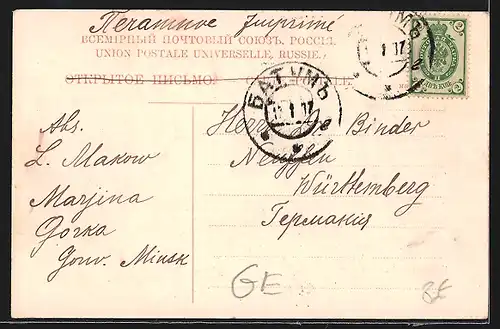 Печатное Imprimé
ВСЕМІРНЫЙ ПОЧТОВЫЙ СОЮЗЪ. РОССІЯ.
UNION POSTALE UNIVERSELLE. RUSSIE.
ОТКРЫТОЕ ПИСЬМО
БАТУМЪ
Abs.
L. Makow
Marjina
Gorka
Gouv. Minsk
Herrn Binder
Neuffen
Württemberg
Германия
GE